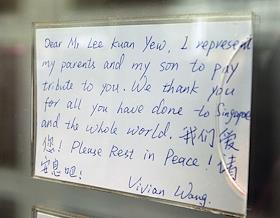 Dear Mr Lee Kuan Yew, I represent
my parents and my son to pay
tribute to you. We thank you
for all you have done to Singapore
and the whole world. 我们爱
您! Please Rest in Peace! 请
安息吧!
Vivian Wang.